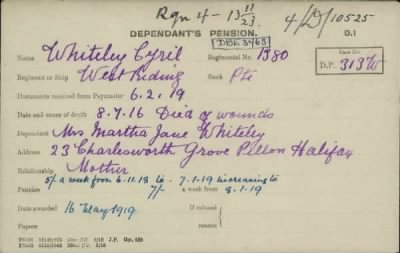 Rgn 4 - 13 11/23. 4/D/10525
DEPENDANT'S PENSION. D.1
DBE 3763
Name Whiteley Cyril Regimental No. 1380 Case No.
Regiment or Ship West Riding Rank Pte D.P. 313W
Documents received from Paymaster 6.2.19
Date and cause of death 8.7.16 Died of wounds
Dependant Mrs Martha Jane Whiteley
Address 23 Charlesworth Grove Pellon Halifax
Relationship Mother
Pension 5/- a week from 6-11-18 to - 7-1-19 increasing to
7/- a week from 8-1-19
Date awarded 16 May 1919 If refused
Papers reason
J.P. Gp.